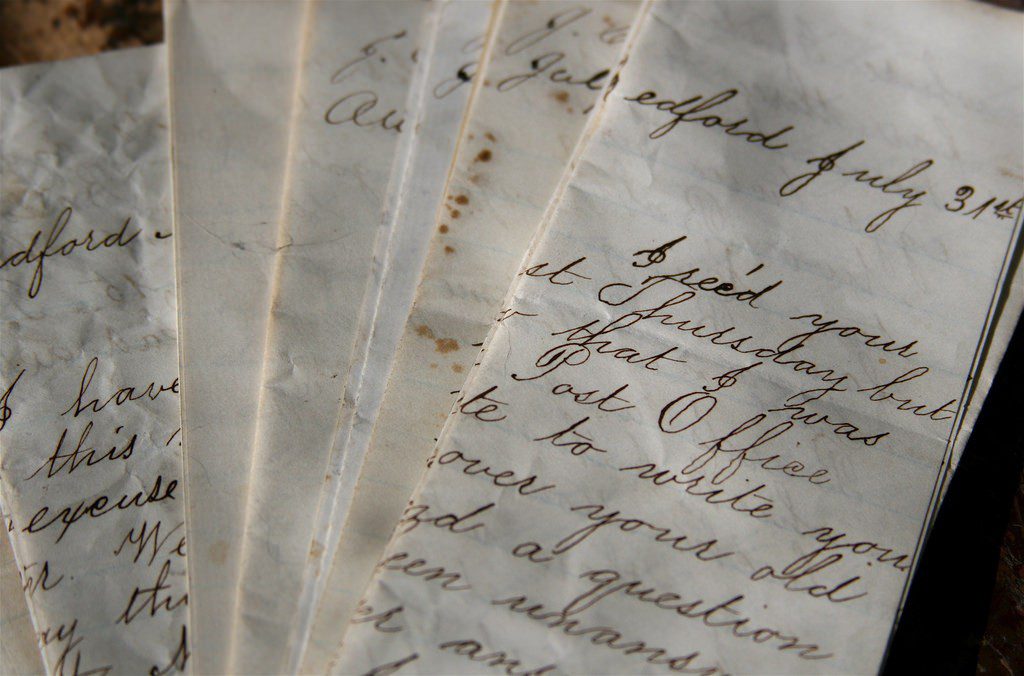 dford.
I have
this
excuse
We
J.
Au
J.
Jul
edford July 31st
I rec'd your
st Thursday but
that I was
Post Office
te to write you
over your old
nd a question
een unansw
er an